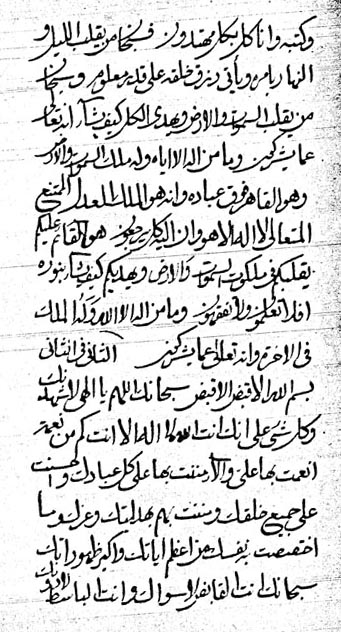 وكتبه وانا كل بكل مهتدون فسبحان من يقلب الليل و
النهار بامره ويأتي برزق خلقه على قدر معلوم وسبحان
من يقلب السموات والارض ويهدى الكل كيف يشاء انه تعالى
عما يشركون وما من اله الا اياه وله ملك السموات والارض
وهو القاهر فوق عباده وانه هو الملك العدل الممتنع
المتعالى لا اله الا هو وان اليه كل يرجعون هو القائم عليكم
يقلبكم فى ملكوت السموات والارض ويهديكم كيف يشاء بنوره
افلا تعلمون ولا تفقهون وما من اله الا الله وله الملك
فى الاخرة وانه تعالى عما يشركون الثانى فى الثانى
بسم الله الاقبض الاقبض سبحانك اللهم يا الهى اشهدنك
وكل شىء على انك انت الله لا اله الا انت كم من نعمة
انعمت بها على والا مننت بها على كل عبادك واحسنت
على جميع خلقك ومننت بهم بهدايتك وعزك وما
اختصصت به نفسك من اعظم اياتك واكبر ظهوراتك
سبحانك انت القابض لا سواك وانت الباسط لا دونك